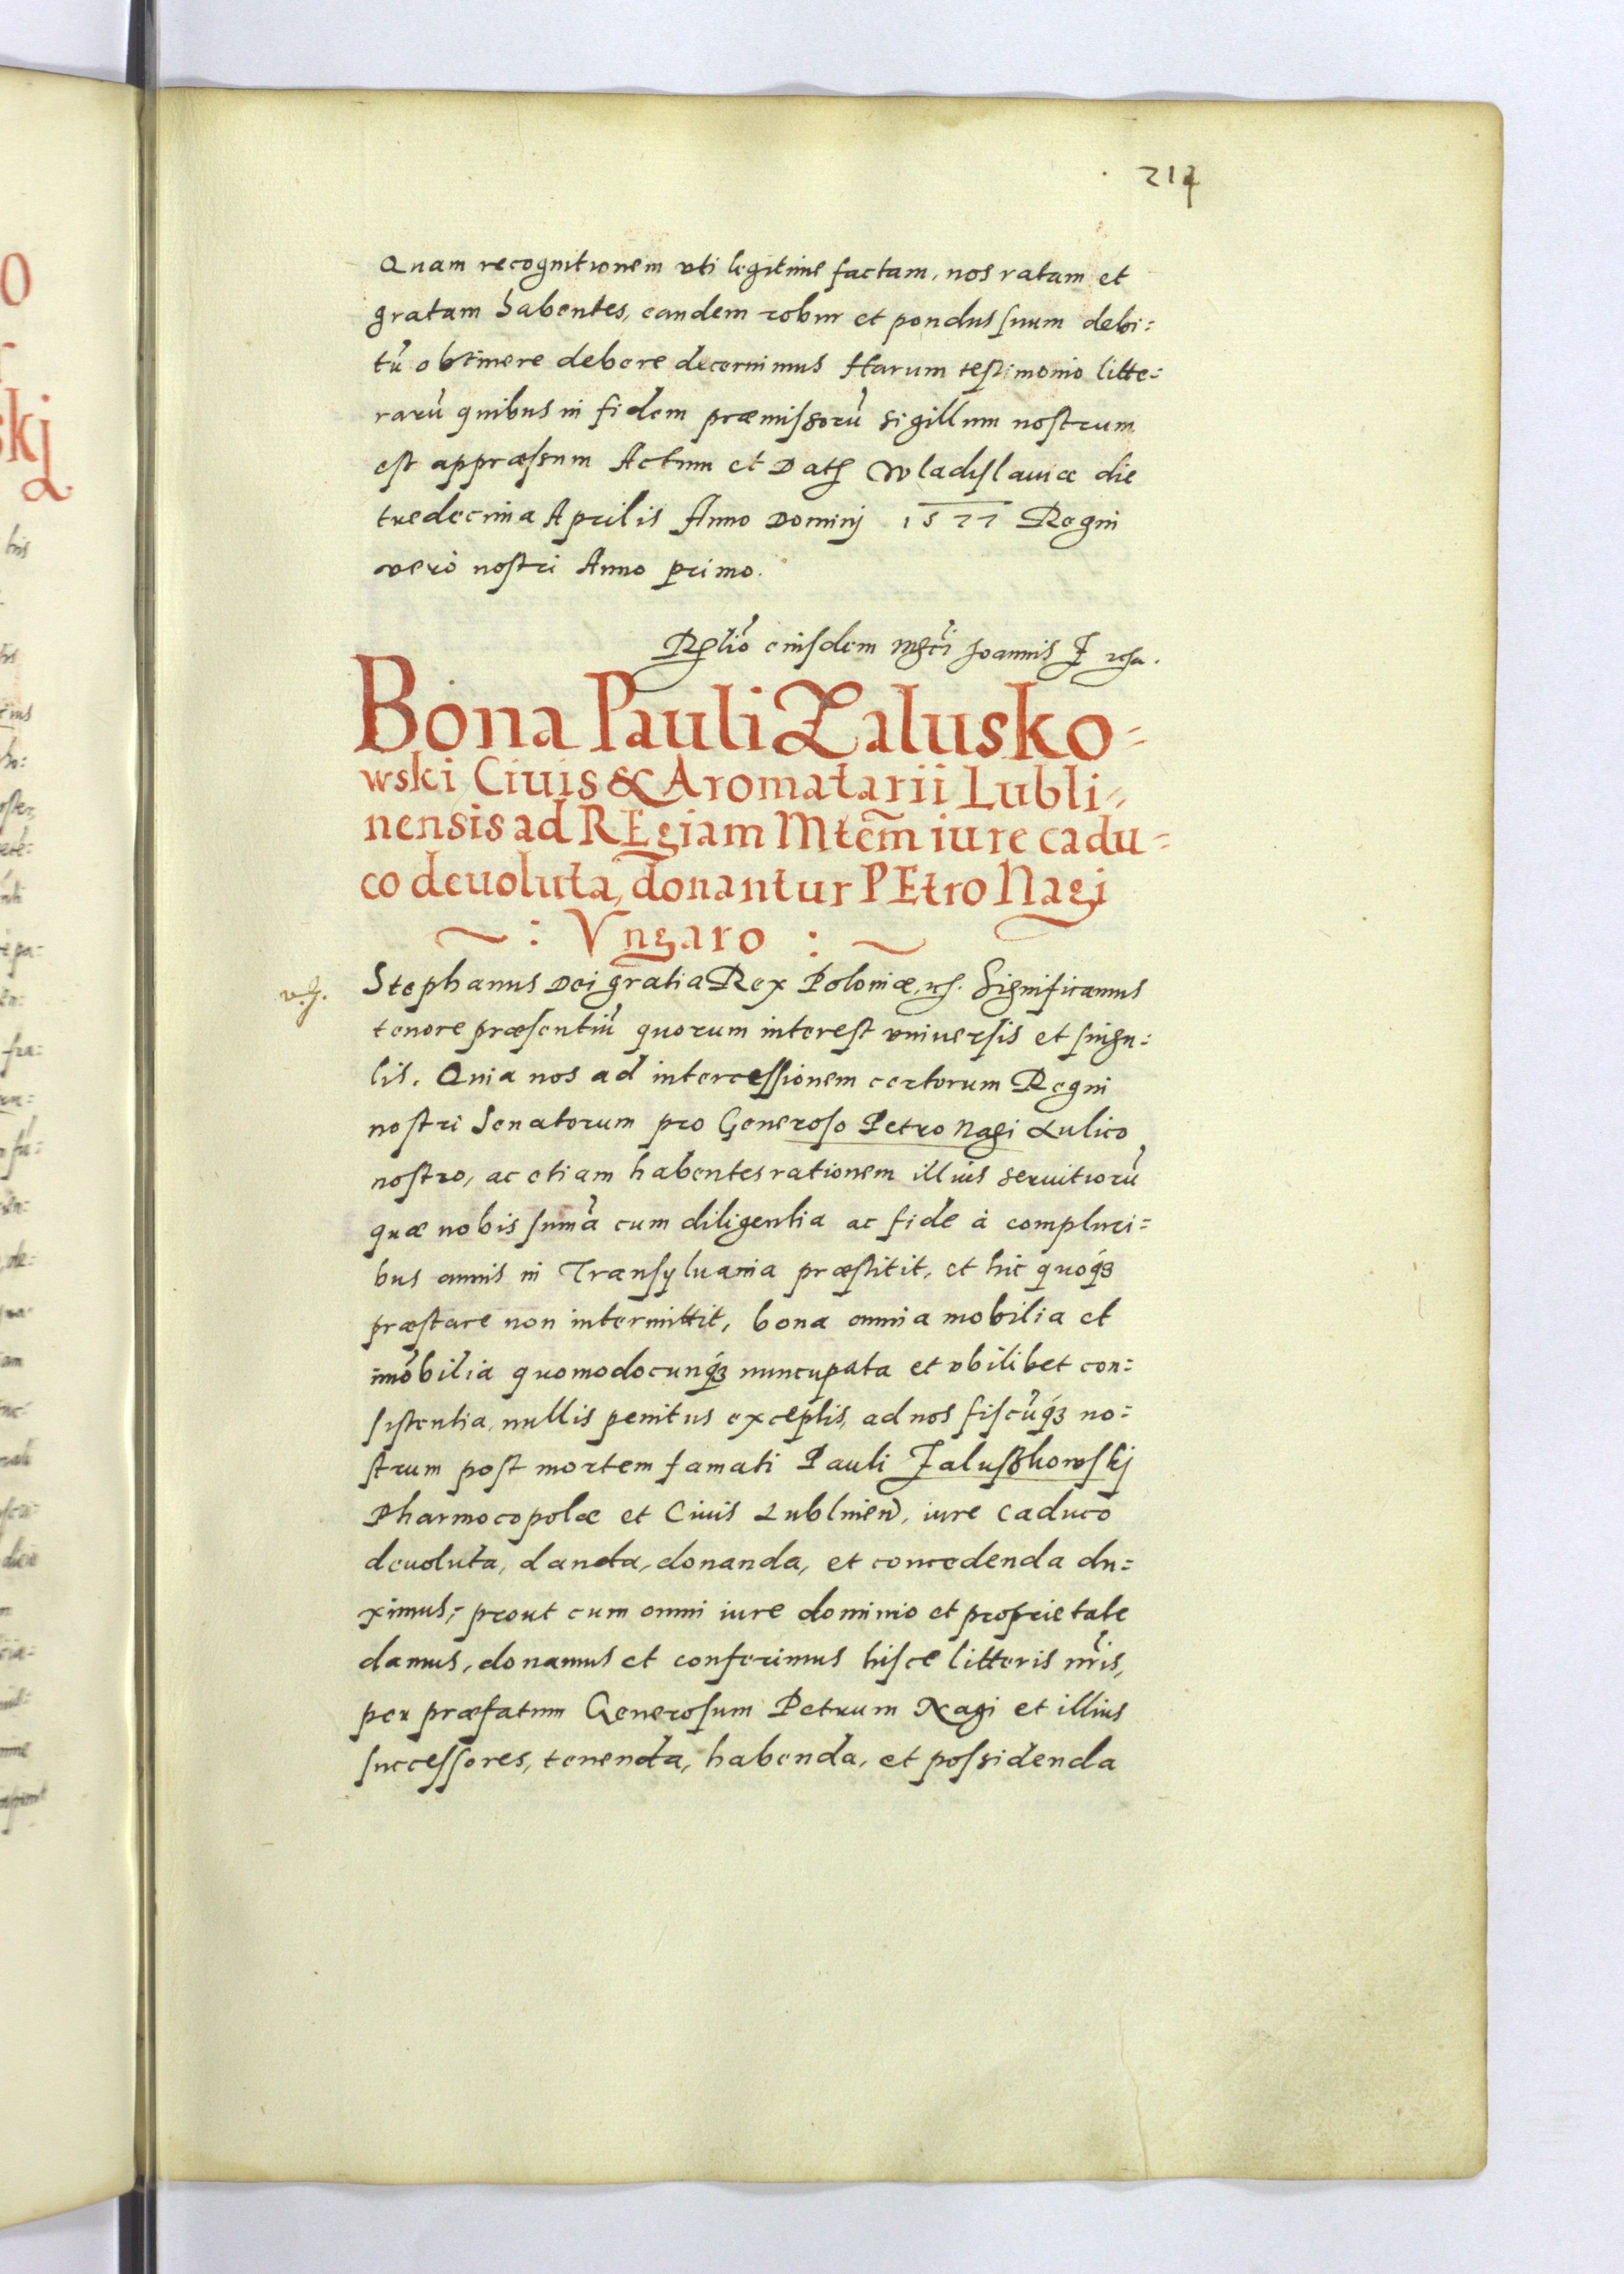 214
Quam recognitionem vti legitime factam, nos ratam et
gratam habentes, eandem robur et pondus suum debi:
tũ obtinere debere decernimus Harum testimonio litte:
rarũ quibus in fidem præmissorũ sigillum nostrum
est appræssum Actum et Dat Wladislauiæ die
tredecima Aprilis Anno Dominj 1577 Regni
vero nostri Anno primo.
Rlõ eiusdem Mgci Joannis Z
Bona Pauli Zalusko=
wski Ciuis & Aromatarii Lubli=
nensis ad REgiam Mtem iure cadu=
co deuoluta, donantur PEtro Nagi
: Vngaro :
Stephanus Dei gratia Rex Poloniæ, Significamus
tenore præsentiũ quorum interest vniuersis et singu:
lis. Quia nos ad intercessionem certorum Regni
nostri Senatorum pro Generoso Petro Nagi Aulico
nostro, ac etiam habentes rationem illius seruitiorũ
quæ nobis sum̃a cum diligentia ac fide à compluri:
bus annis in Transyluania præstitit, et hic quoq́ꝫ
præstare non intermittit, bona omnia mobilia et
im̃obilia quomodocunq́ꝫ nuncupata et vbilibet con:
sistentia, nullis penitus exceptis, ad nos fiscũq́ꝫ no:
strum post mortem famati Pauli Zaluskowskj
Pharmocopolæ et Ciuis Lublinen̄, iure caduco
deuoluta, danda, donanda, et concedenda du:
ximus, prout cum omni iure dominio et proprietate
damus, donamus et conferimus hisce litteris nr̃is,
per præfatum Generosum Petrum Nagi et illius
successores, tenenda, habenda, et possidenda